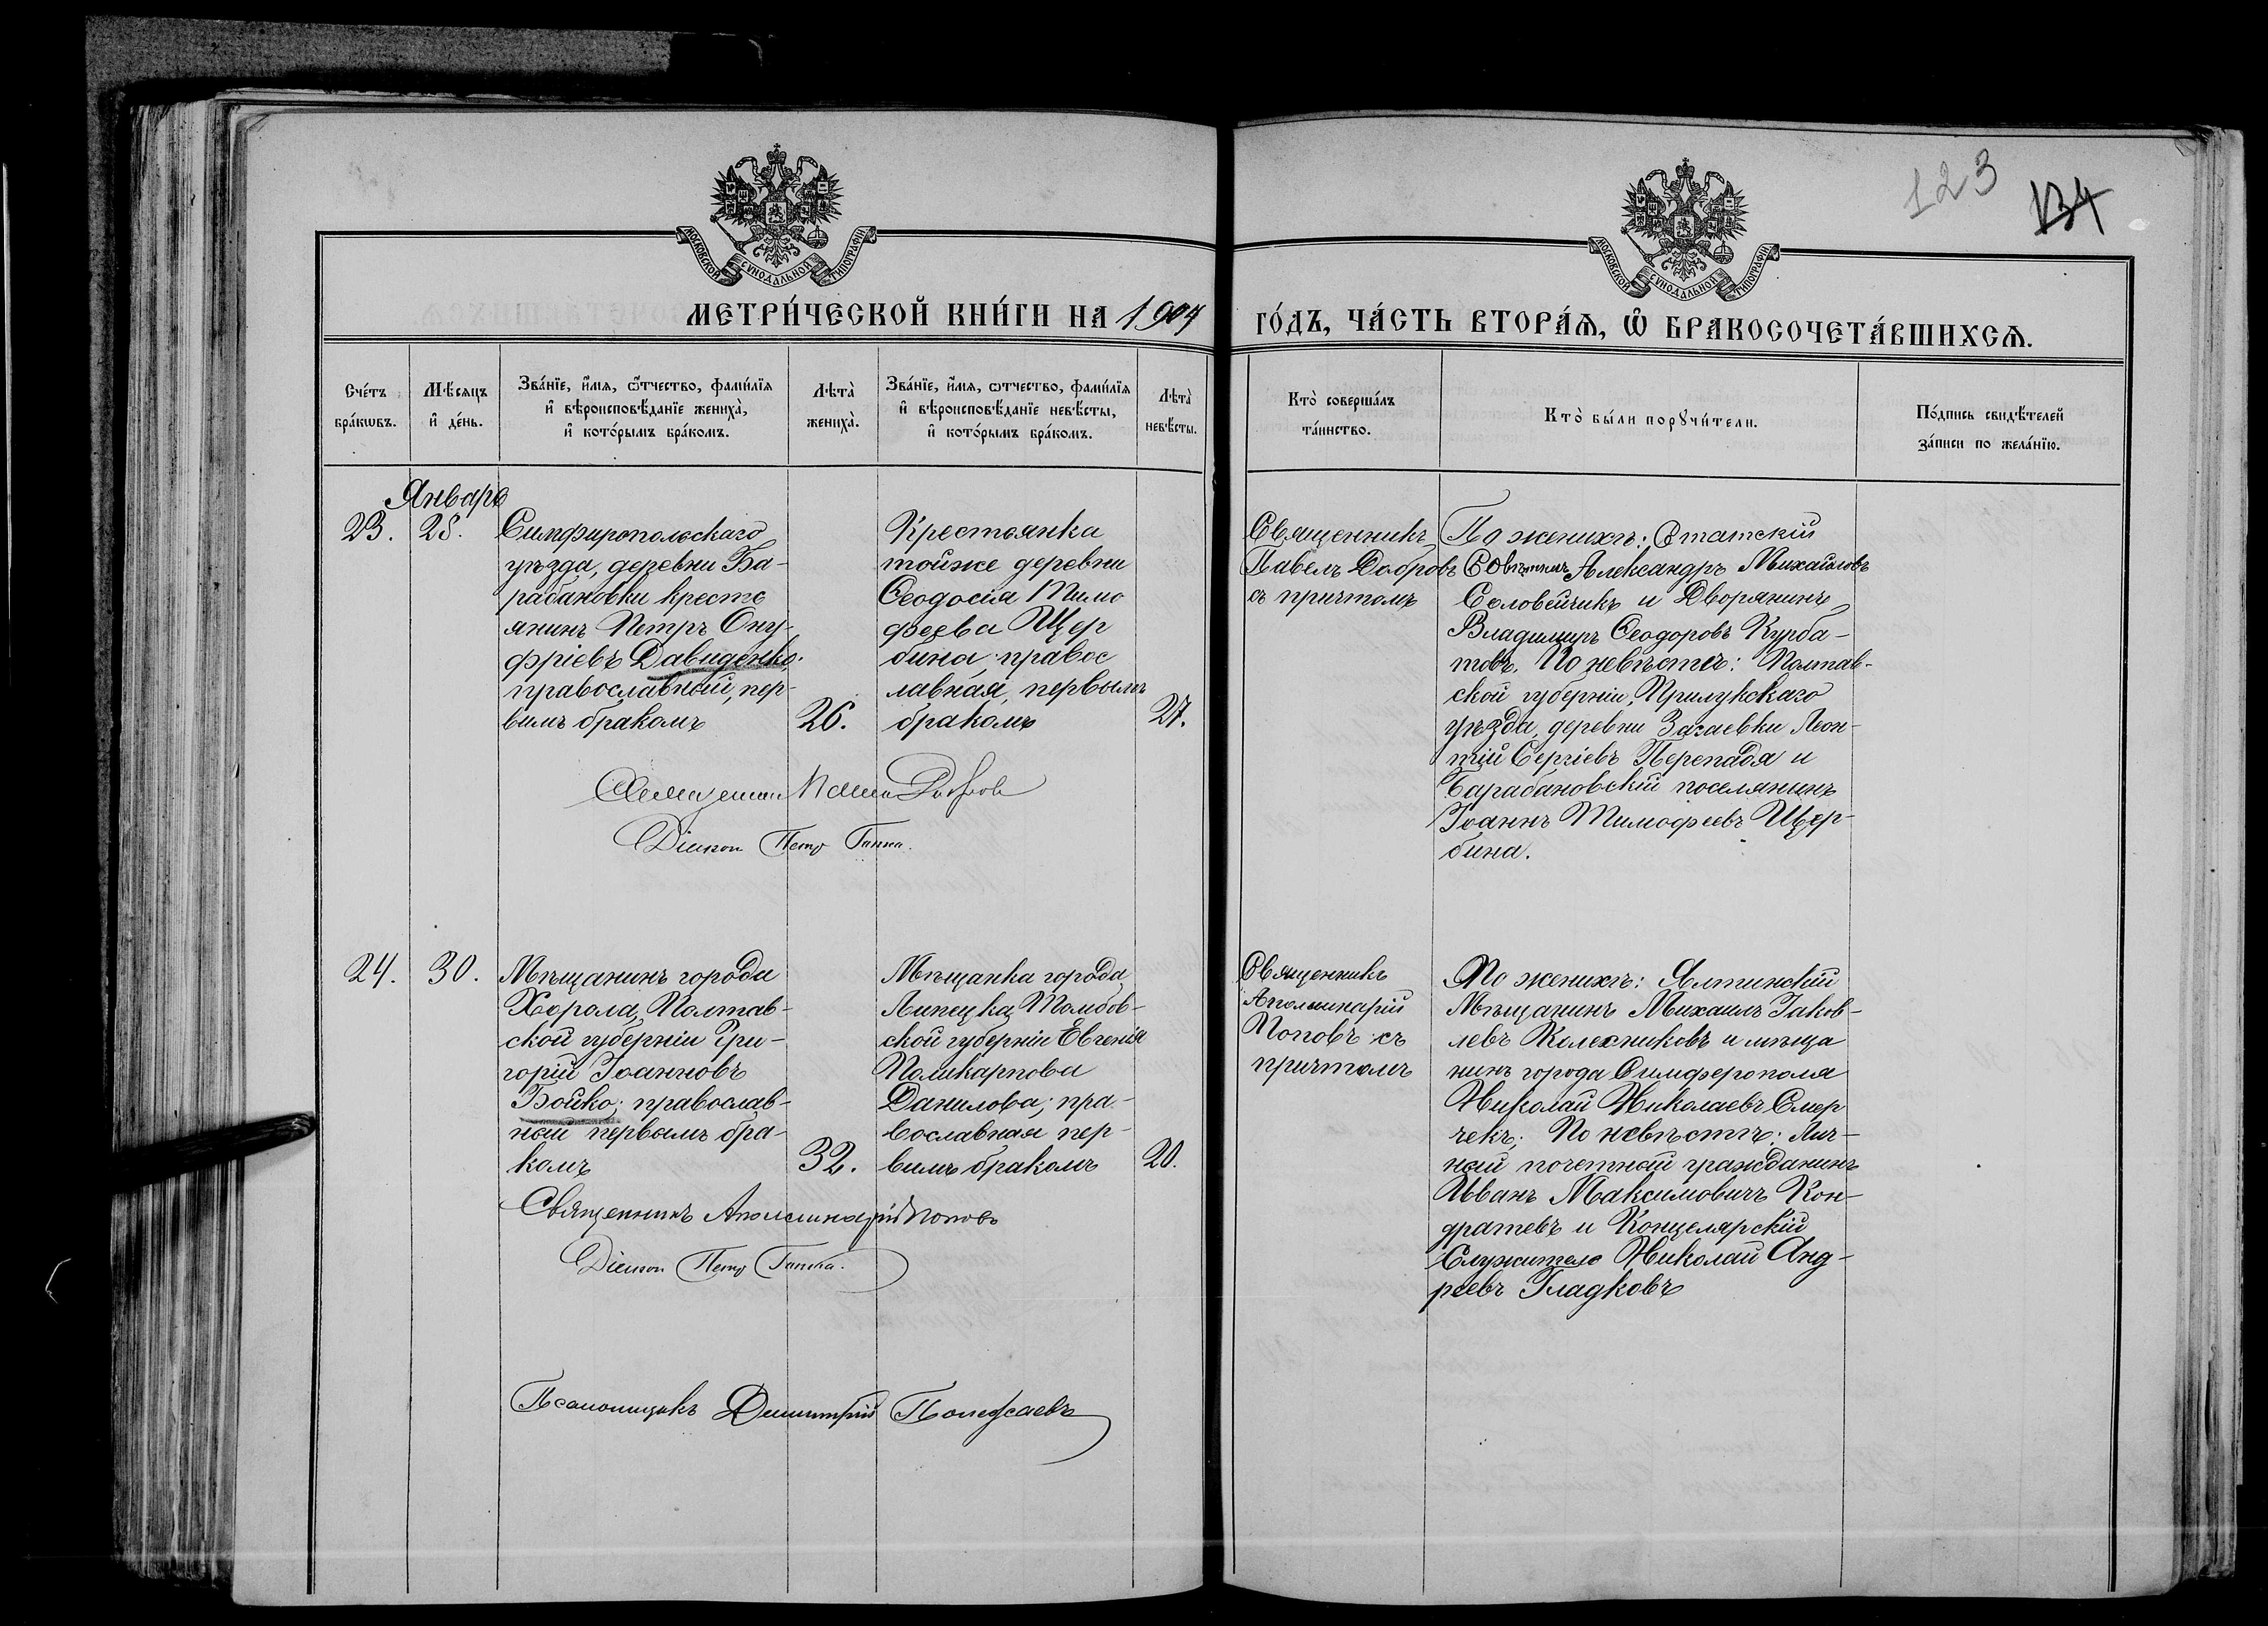 123
134
МОСКОВСКОЙ СУНОДАЛЬНОЙ ТИПОГРАФІИ
МОСКОВСКОЙ СУНОДАЛЬНОЙ ТИПОГРАФІИ
МЕТРИ́ЧЕСКОЙ КНИ́ГИ НА 1904
ГО́ДЪ, ЧА́СТЬ ВТОРА́Ѧ, Ѽ БРАКОСОЧЕТА́ВШИХСѦ.
Сче́тъ
бра́кѡвъ.
Мѣ́сѧцъ
и҆ де́нь.
Зва́нїе, и҆́мѧ, ѻ҆́тчество, фами́лїѧ
и҆ вѣроисповѣ́данїе жениха̀,
и҆ кото́рымъ бра́комъ.
Лѣта̀
жениха̀.
Зва́нїе, и҆́мѧ, ѻтчество, фами́лїѧ
и҆ вѣроисповѣ́данїе невѣ́сты,
и҆ кото́рымъ бра́комъ.
Лѣта̀
невѣ́сты.
Кто̀ соверша́лъ
та́инство.
Кто̀ бы́ли порꙋчи́тели.
По́дпись свидѣ́телей
за́писи по жела́нїю.
Январь
23.
28.
Симфиропольскаго
уѣзда, деревни Ба-
рабановки кресть
янинъ Петръ Ону-
фріевъ Давиденко;
православный, пер-
вымъ бракомъ
26.
Крестьянка
тойже деревни
Ѳеодосія Тимо
феева Щер
бина правос
лавная, первымъ
бракомъ
27.
Священникъ
Павелъ Добровъ
съ причтомъ
По женихѣ: Статскій
Совѣтникъ Александръ Михайловъ
Соловейчикъ и Дворянинъ
Владимиръ Ѳеодоровъ Курба-
товъ. По невѣстѣ: Полтав-
ской губерніи, Прилукскаго
уѣзда, деревни Загаевки Леон-
тій Сергіевъ Перепадя и
Барабановскій поселянинъ
Іоаннъ Тимофеевъ Щер-
бина.
Священник Павел Добров
Діакон Петр Ганка.
24.
30.
Мѣщанинъ города
Хорола, Полтав-
ской губерніи Гри-
горій Іоанновъ
Бойко; православ-
ный первымъ бра-
комъ
32.
Мѣщанка города
Липецка, Тамбов-
ской губерніи Евгенія
Поликарпова
Данилова; пра-
вославная пер-
вымъ бракомъ
20.
Священникъ
Аполлинарій
Поповъ съ
причтомъ
По женихѣ: Ялтинскій
Мѣщанинъ Михаилъ Іаков-
левъ Колесниковъ и мѣща
нинъ города Симферополя
Николай Николаевъ Смер
чекъ; По невѣстѣ: Лич-
ный почетный гражданинъ
Иванъ Максимовичъ Кон-
дратевъ и Концелярскій
Служитель Николай Анд-
реевъ Гладковъ
Священникъ Аполлинарій Поповъ
Діакон Петр Ганка.
Псаломщикъ Димитрій Полежаевъ